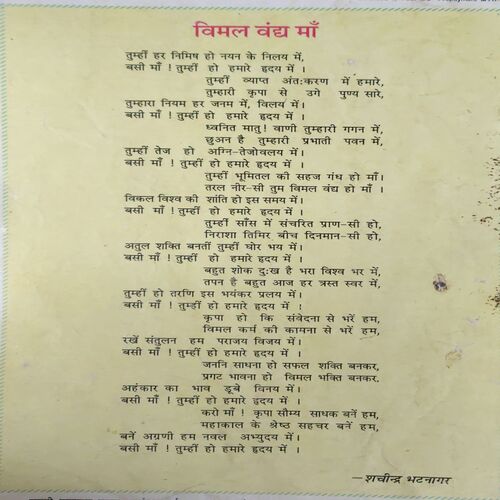 विमल वंद्य माँ
तुम्हीं हर निमिष हो नयन के निलय में,
बसी माँ ! तुम्हीं हो हमारे हृदय में ।
तुम्हीं व्याप्त अंतःकरण में हमारे,
तुम्हारी कृपा से उगे पुण्य सारे,
तुम्हारा नियम हर जनम में, विलय में।
बसी माँ ! तुम्हीं हो हमारे हृदय में ।
ध्वनित मातु! वाणी तुम्हारी गगन में,
छुअन है तुम्हारी प्रभाती पवन में,
तुम्हीं तेज हो अग्नि-तेजोवलय में।
बसी माँ ! तुम्हीं हो हमारे हृदय में ।
तुम्हीं भूमितल की सहज गंध हो माँ।
तरल नीर-सी तुम विमल वंद्य हो माँ ।
विकल विश्व की शांति हो इस समय में।
बसी माँ ! तुम्हीं हो हमारे हृदय में ।
तुम्हीं साँस में संचरित प्राण-सी हो,
निराशा तिमिर बीच दिनमान-सी हो,
अतुल शक्ति बनतीं तुम्हीं घोर भय में।
बसी माँ ! तुम्हीं हो हमारे हृदय में ।
बहुत शोक दुःख है भरा विश्व भर में,
तपन है बहुत आज हर त्रस्त स्वर में,
तुम्हीं हो तरणि इस भयंकर प्रलय में।
बसी माँ ! तुम्हीं हो हमारे हृदय में ।
कृपा हो कि संवेदना से भरें हम,
विमल कर्म की कामना से भरें हम,
रखें संतुलन हम पराजय विजय में।
बसी माँ ! तुम्हीं हो हमारे हृदय में ।
जननि साधना हो सफल शक्ति बनकर,
प्रगट भावना हो विमल भक्ति बनकर.
अहंकार का भाव डूबे विनय में।
बसी माँ ! तुम्हीं हो हमारे हृदय में ।
करो माँ ! कृपा सौम्य साधक बनें हम,
महाकाल के श्रेष्ठ सहचर बनें हम,
बनें अग्रणी हम नवल अभ्युदय में।
बसी माँ ! तुम्हीं हो हमारे हृदय में ।
—शचीन्द्र भटनागर